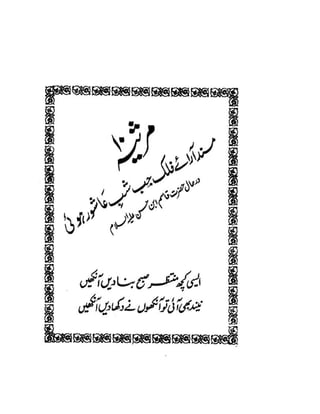 مرثیہ ۱۰
مسند آرائے فلک جب شبِ عاشور ہوئی
در حال حضرت قاسم ابن حسن علیہ السلام
ایسی کچھ منتظر صبح بنا دیں آنکھیں
نیند بھی آئی تو آنکھوں نے دکھا دیں آنکھیں